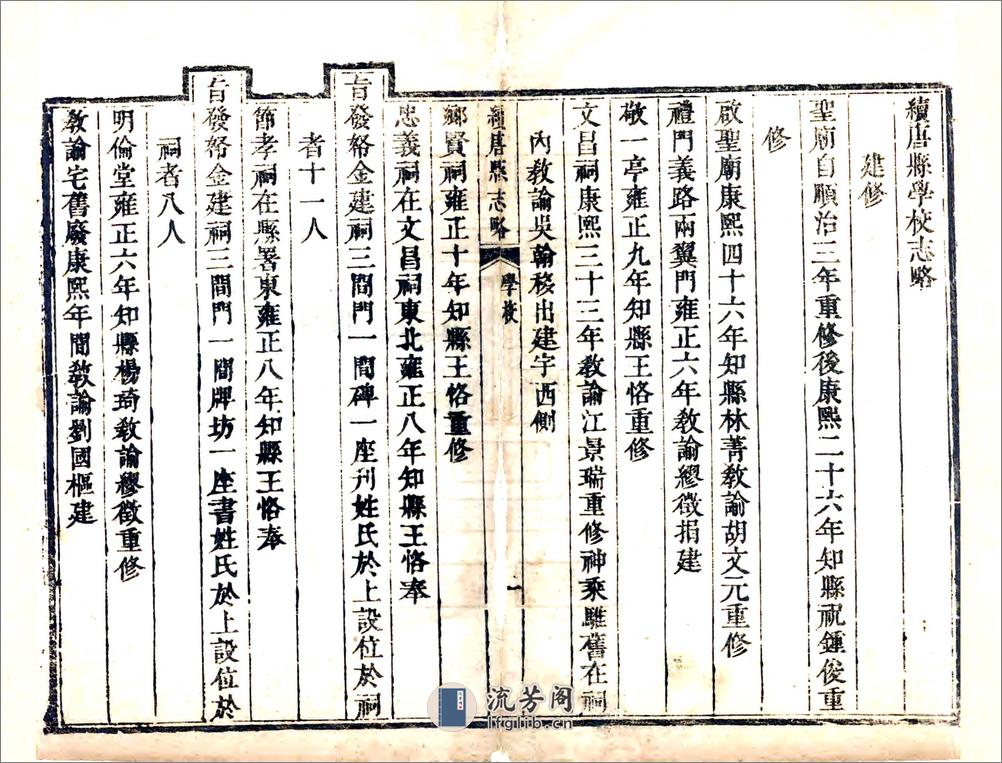 續唐縣學校志略
建修
聖廟自順治三年重修後康熙二十六年知縣祝鍾俊重
修
啟聖廟康熙四十六年知縣林菁教諭胡文元重修
禮門義路兩翼門雍正六年教諭繆徵捐建
敬一亭雍正九年知縣王恪重修
文昌祠康熙三十三年教諭江景瑞重修神乘騅舊在祠
內教諭吳翰移出建宇西側
續唐縣志略
學校
一
鄉賢祠雍正十年知縣王恪重修
忠義祠在文昌祠東北雍正八年知縣王恪奉
旨發帑金建祠三間門一間碑一座刋姓氏於上設位於祠
者十一人
節孝祠在縣署東雍正八年知縣王恪奉
旨發帑金建祠三間門一間牌坊一座書姓氏於上設位於
祠者八人
明倫堂雍正六年知縣楊琦教諭繆徵重修
教諭宅舊廢康熙年間教諭劉國樞建
流芳阁
lfglib.cn